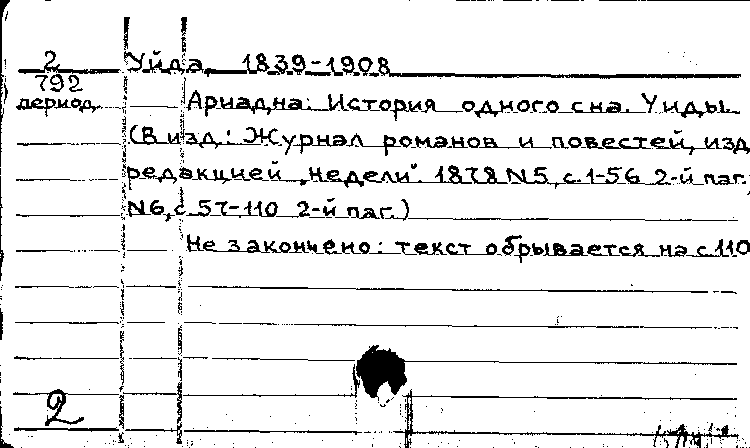 2 Уйда, 1839-1908
792
период. Ариадна: История одного сна. Уиды.
(В изд.: Журнал романов и повестей, изд.
редакцией „Недели". 1878 N5, с.1-56 2-й паг.,
N6, с.57-110 2-й паг.)
Не закончено: текст обрывается на с.110
2